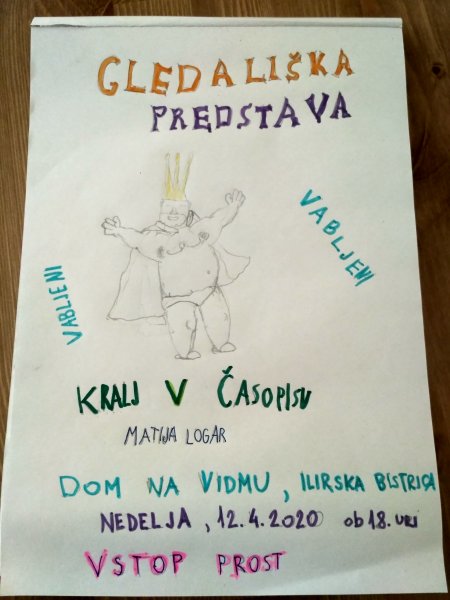 GLEDALIŠKA
PREDSTAVA
VABLJENI
VABLJENI
KRALJ V ČASOPISU
MATIJA LOGAR
DOM NA VIDMU, ILIRSKA BISTRICA
NEDELJA, 12.4.2020 ob 18. uri
VSTOP PROST